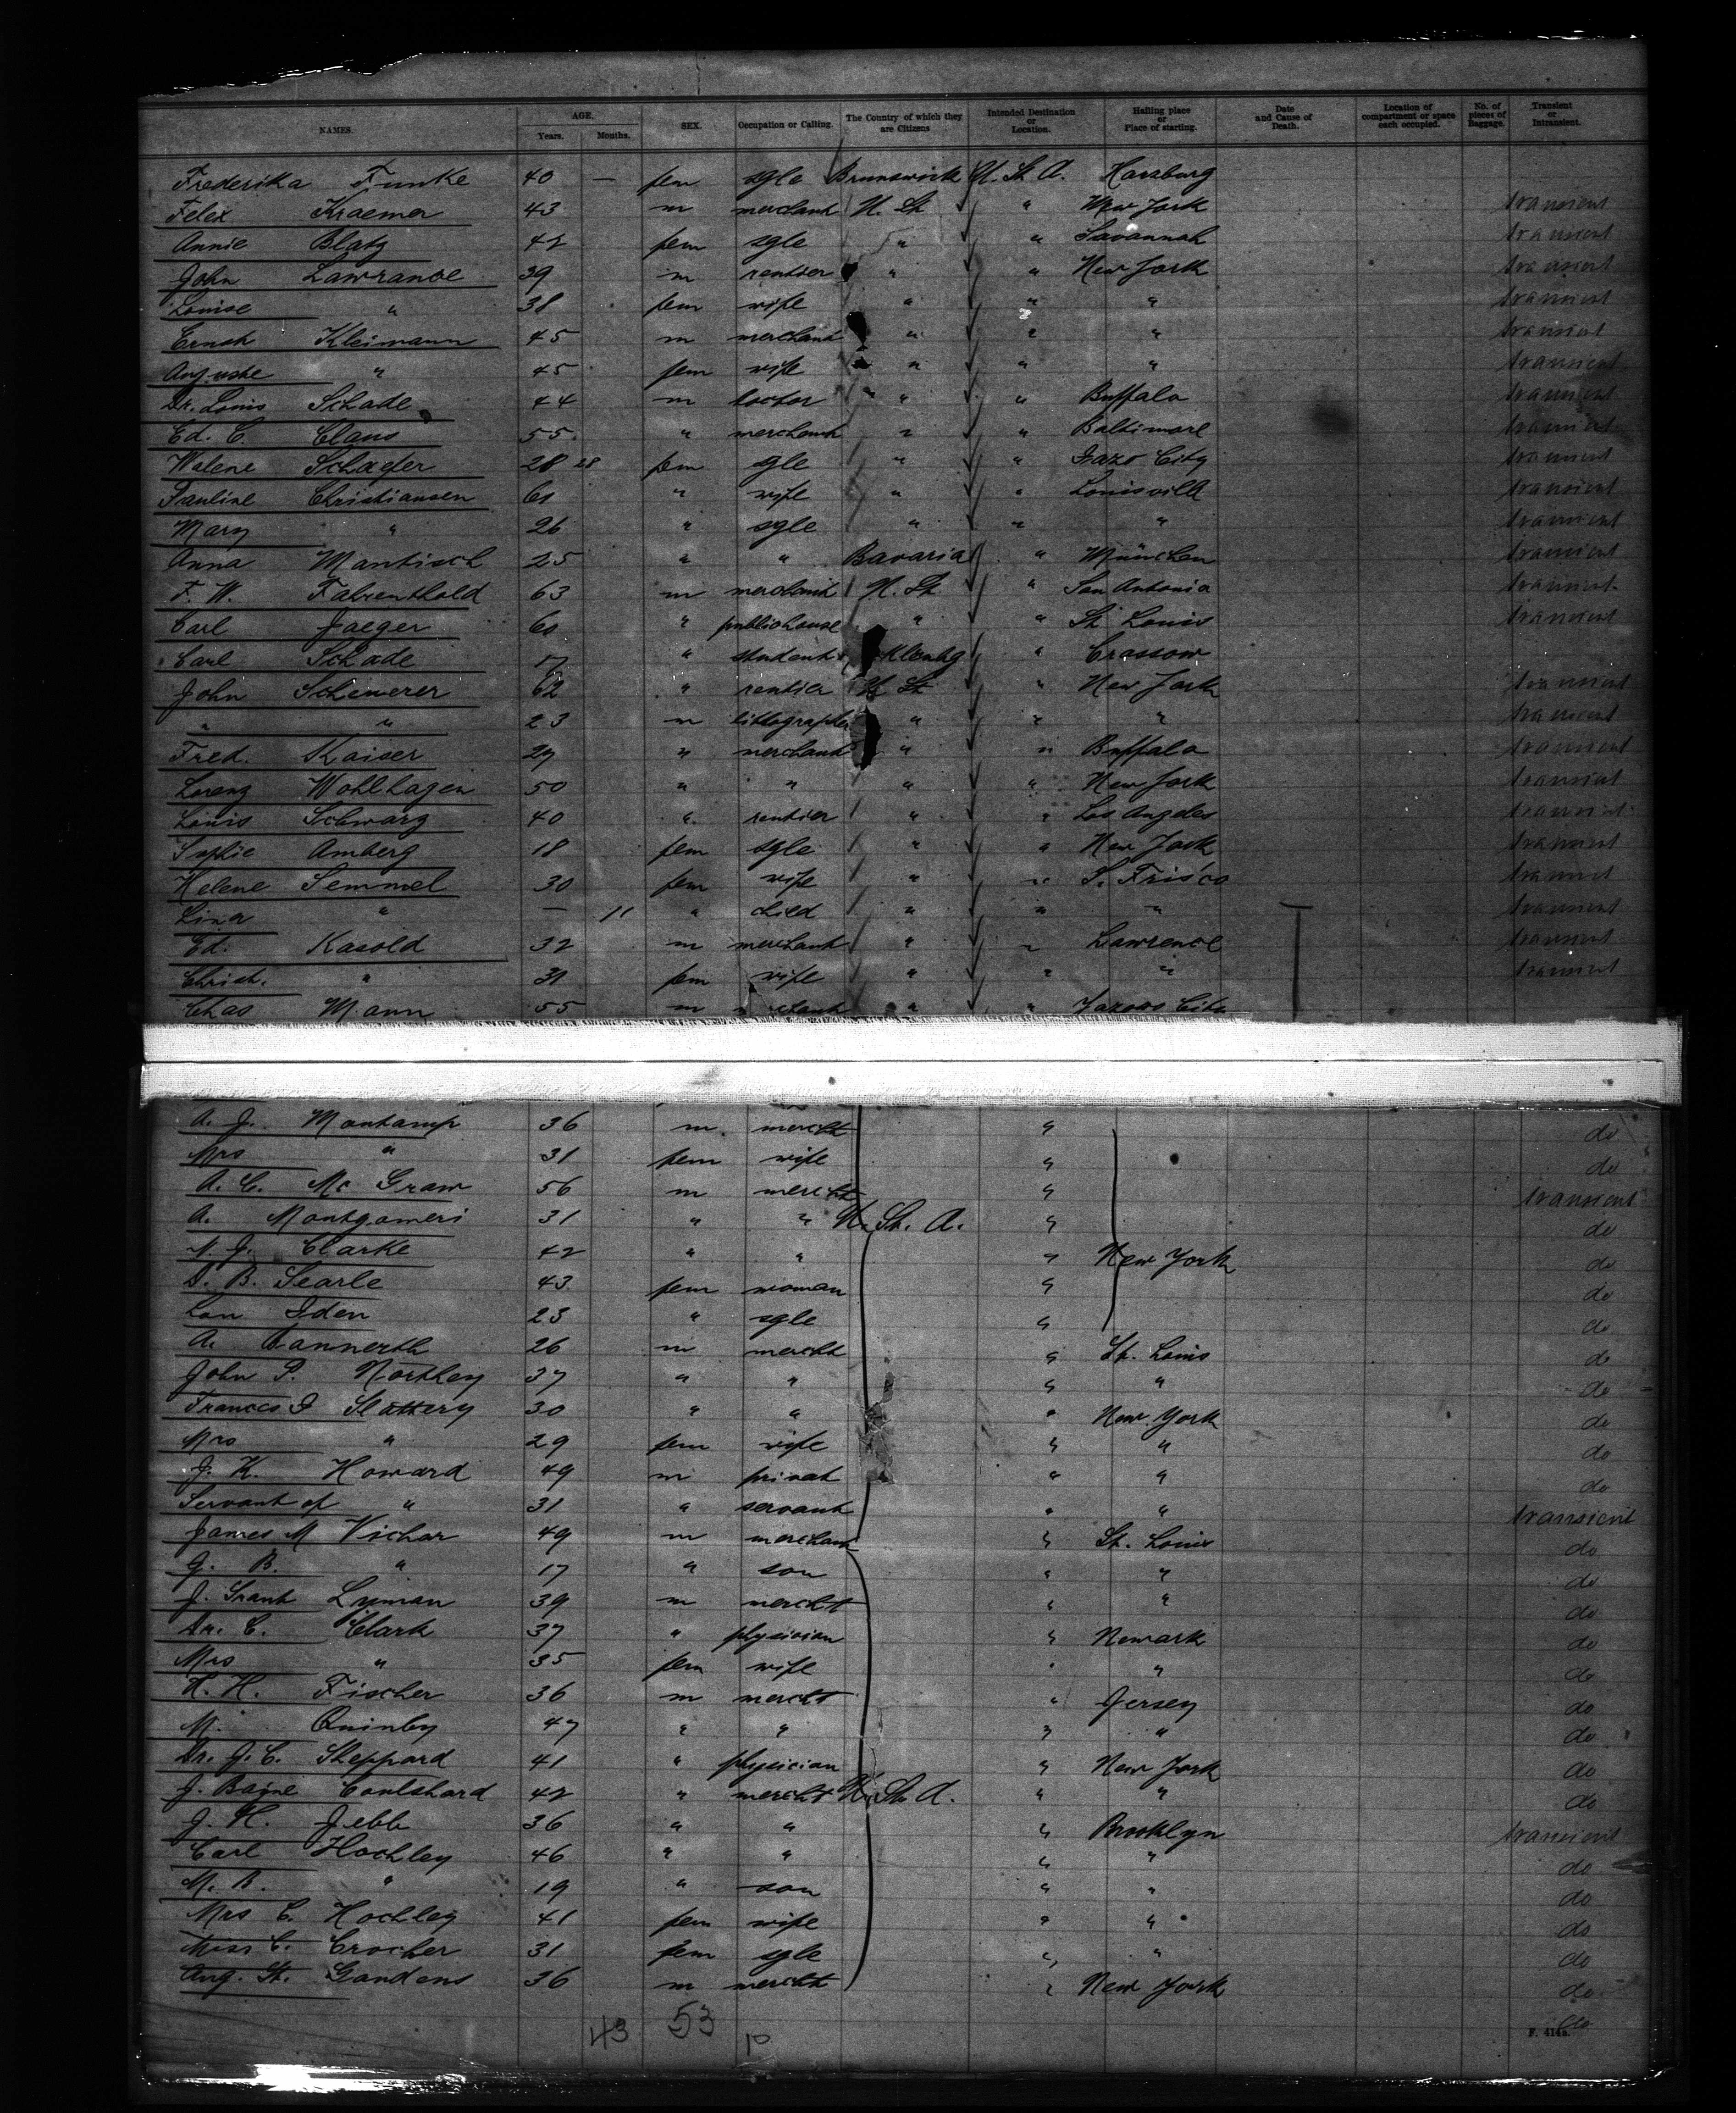 NAMES. AGE. Years. Months. SEX. Occupation or Calling. The Country of which they are Citizens Intended Destination or Location. Hailing place or Place of starting. Date and Cause of Death. Location of compartment or space each occupied. No. of pieces of Baggage. Transient or Intransient.
Frederika Funke 40 — fem sgle Brunswick U. St. A. Harzburg
Felix Kraemer 43 m merchant U. St " New York transient
Annie Blatz 42 fem sgle " " Savannah transient
John Lawrance 39 m rentier " " New York transient
Louise " 38 fem wife " " " transient
Ernst Kleimann 45 m merchant " " " transient
Auguste " 45 fem wife " " " transient
Dr. Louis Schade 44 m doctor " " Buffalo transient
Ed. C. Claus 55 " merchant " " Baltimore transient
Helene Schaefer 28 28 fem sgle " " City transient
Pauline Christiansen 60 " wife " " Louisville transient
Mary " 26 " sgle " " " transient
Anna Mantisch 25 " " Bavaria " München transient
F. W. Fahrenthold 63 m merchant U. St " San Antonio transient
Carl Jaeger 60 " publichouse " " St. Louis transient
Carl Schade 17 " student " Crassow
John Scheuerer 62 " rentier U St " New York transient
" " 23 m lithographer " " " transient
Fred. Kaiser 29 " merchant " " Buffalo transient
Lorenz Wohlhagen 50 " " " " New York transient
Louis Schwarz 40 " rentier " " Los Angeles transient
Sophie Amberg 18 fem sgle " " New York transient
Helene Semmel 30 fem wife " " S. Frisco transient
Lina " — 11 " child " " " transient
Ed. Kasold 32 m merchant " " Lawrence transient
Christ. " 31 fem wife " " " transient
Chas Mann 55 m merchant " " Yazoo City
A. J. Montamp 36 m mercht " do
Mrs " 31 fem wife " do
A. C. Mc Graw 56 m mercht " transient
A. Montgomeri 31 " " U. St. A. " do
N. J. Clarke 42 " " " New York do
D. B. Searle 43 fem woman " do
Lou Iden 23 " sgle " do
A. Cannerth 26 m mercht " St. Louis do
John P. Northey 37 " " " " do
Frances J Slattery 30 " " " New York do
Mrs " 29 fem wife " " do
J. K. Howard 49 m privat " " do
Servant of " 31 " servant " " transient
James M Vichar 49 m merchant " St. Louis do
G. B. " 17 " son " " do
J. Grant Lyman 39 m mercht " " do
Dr. C. Clark 37 " physician " Newark do
Mrs " 35 fem wife " " do
H. H. Fischer 36 m mercht " Jersey do
M. Quinby 47 " " " " do
Dr. J. C. Sheppard 41 " physician " New York do
J. Baine Coulshard 42 " mercht U. St. A. " " do
J. H. Jebb 36 " " " Brooklyn transient
Carl Hochley 46 " " " " do
M. B. " 19 " son " " do
Mrs C. Hochley 41 fem wife " " do
Miss C. Crocher 31 fem sgle " " do
Aug. St. Gaudens 36 m mercht " New York do
43 53 do
F. 414a.